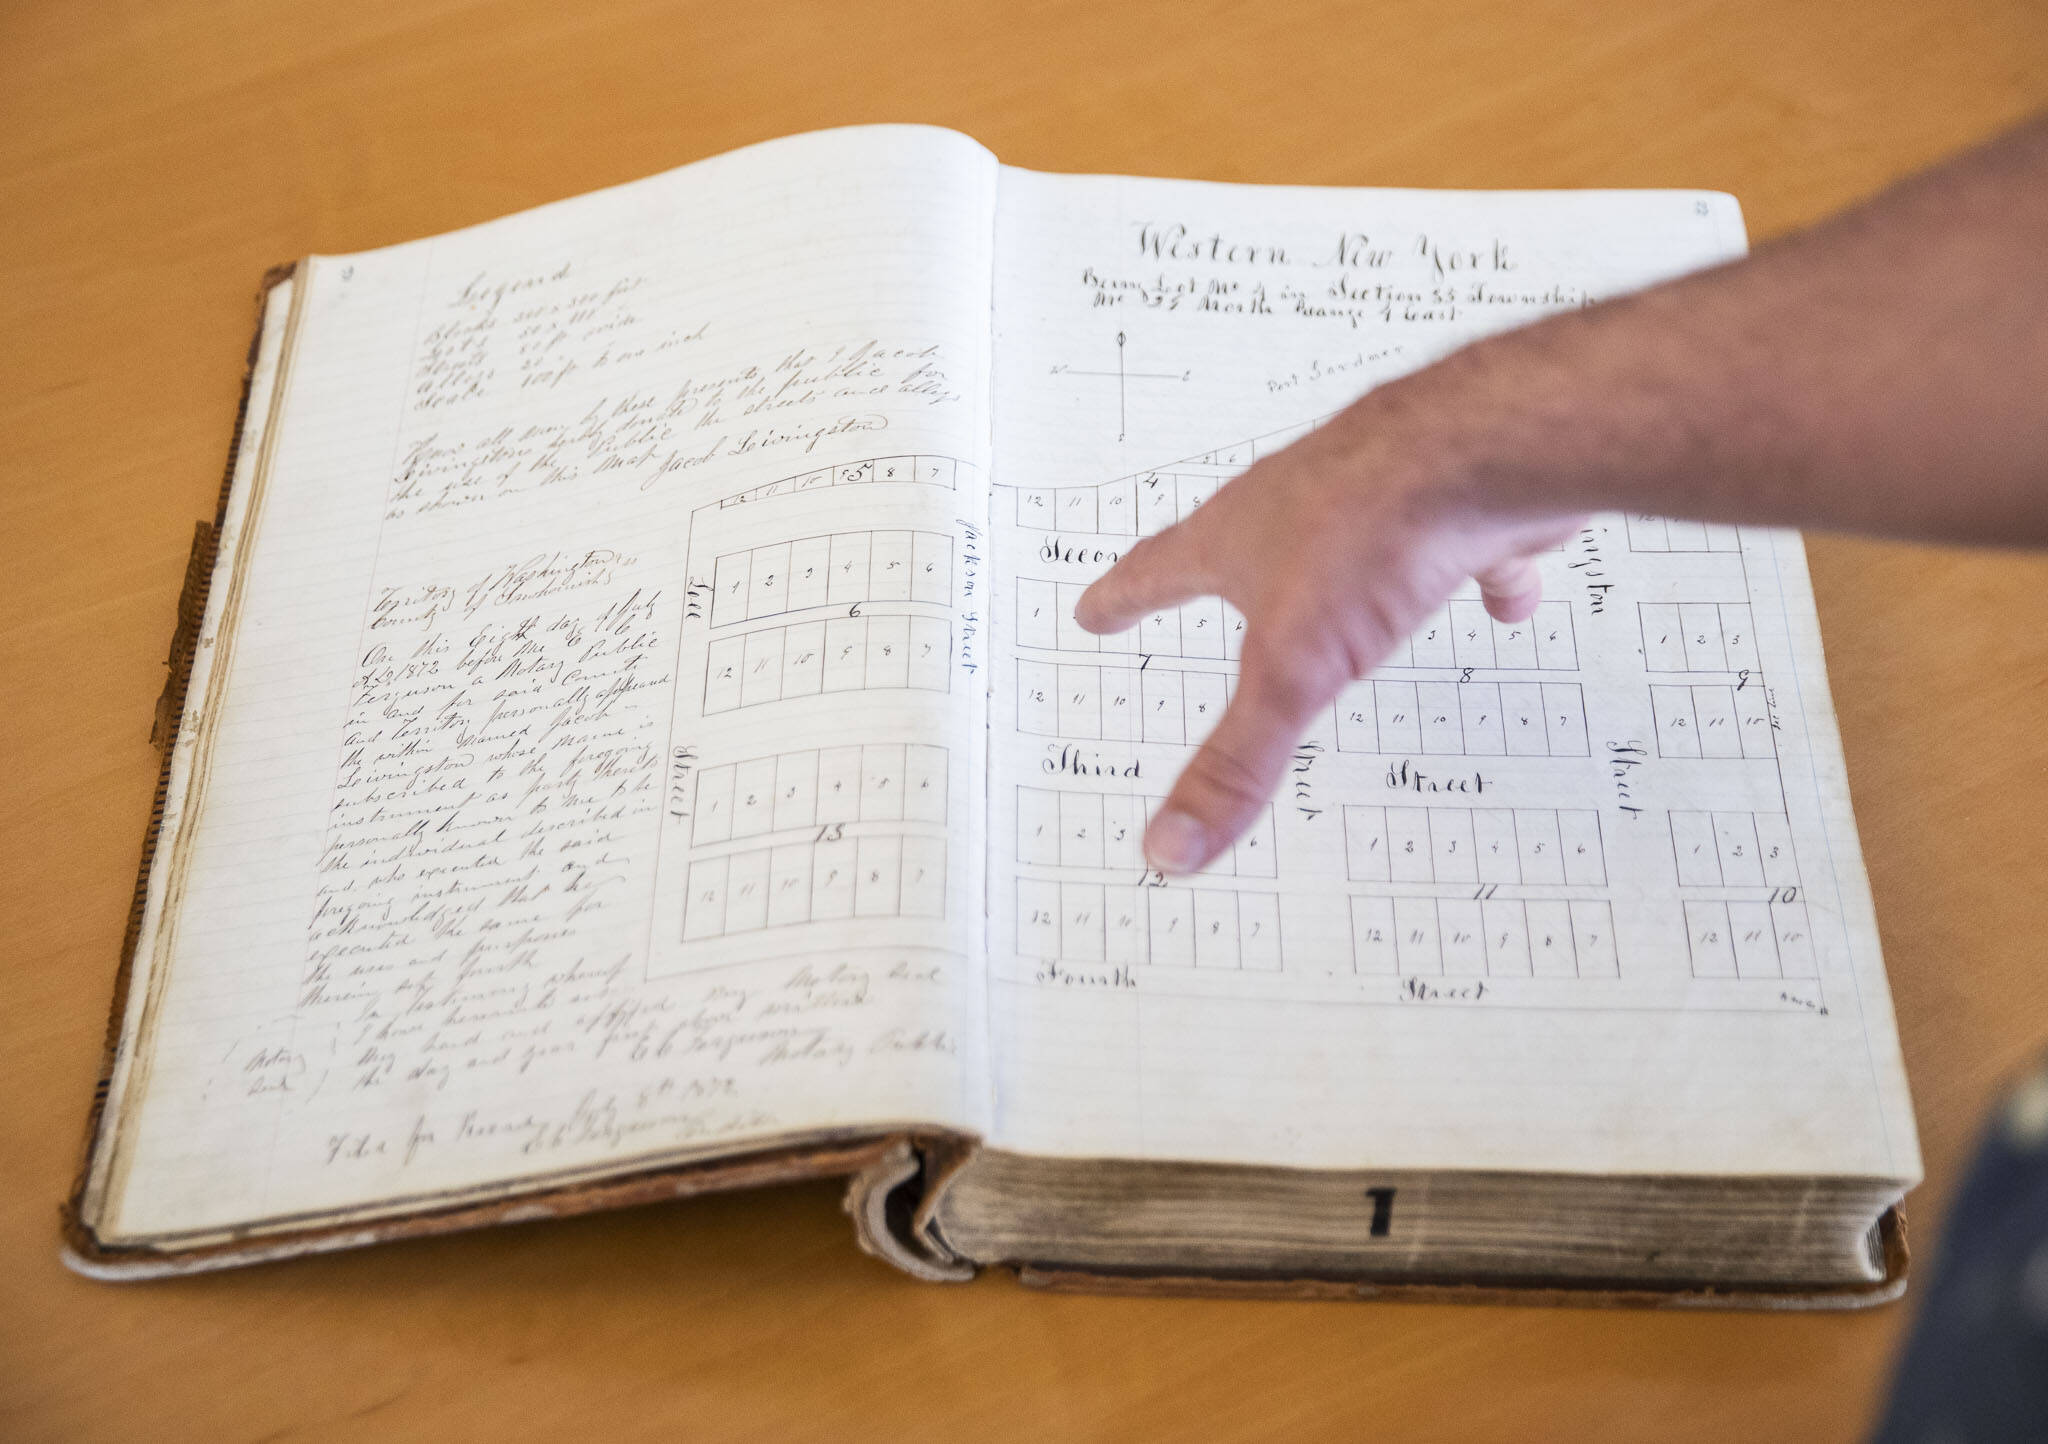 Legend
Blocks 300 x 300 feet
Lots 50 x
Streets 80 ft wide
Alleys 20 "
Scale 100 ft to one inch
Know all men by these presents that I Jacob
Livingston hereby donate to the public for
the use of the Public the streets and alleys
as shown on this Map Jacob Leivingston
Territory of Washington
County of Snohomish
On this Eight day of July
A.D. 1872 before Me E C
Ferguson a Notary Public
in and for said County
and Territory personally appeared
the within named Jacob
Leivingston whose name is
subscribed to the foregoing
instrument as party thereto
personally known to me to be
the individual described in
and who executed the said
foregoing instrument and
acknowledged that he
executed the same for
the uses and purposes
therein set fourth
In testimony whereof
I have hereunto set
my hand and affixed my Notary Seal
the day and year first above written
E C Ferguson
Notary Public
Notary
Seal
Filed for Record July 8th 1872
E C Ferguson
12 11 10 9 5 8 7
1 2 3 4 5 6
6
12 11 10 9 8 7
1 2 3 4 5 6
13
12 11 10 9 8 7
Street
Jackson Street
3
Western New York
Being Lot No 4 in Section 35 Township
No 29 North Range 4 East
W E
S
Port Gardner
5 6
4
12 11 10 9 8
Secon
1 4 5 6
7
12 11 10 9 8
Third
1 2 3 6
12
12 11 10 9 8 7
Fourth
Street
3 4 5 6
8
12 11 10 9 8 7
Street
1 2 3 4 5 6
11
12 11 10 9 8 7
Street
ingston
Street
12
1 2 3
9
12 11 10
1 2 3
10
12 11 10
1